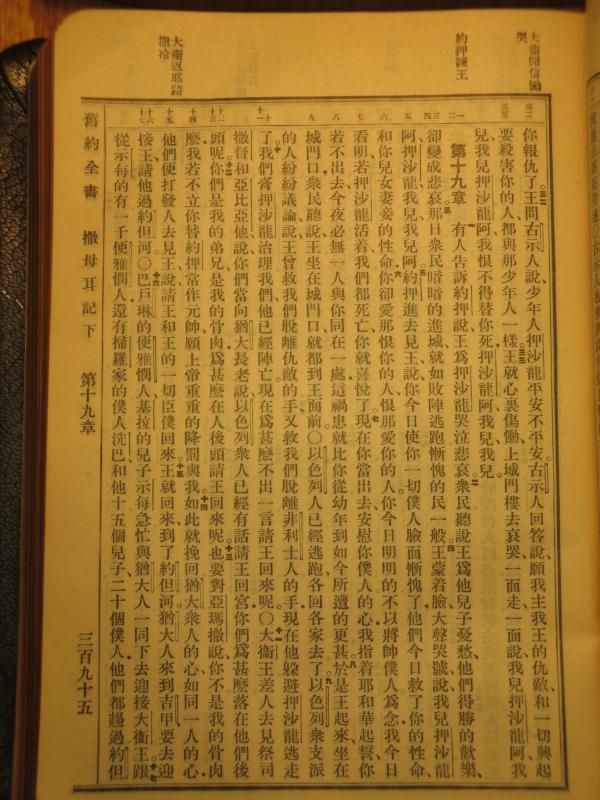 大衛聞信慟
哭
約押諫王
大衛返耶路
撒冷
你報仇了王問古示人說少年人押沙龍平安不平安古示人回答說願我主我王的仇敵和一切興起
要殺害你的人都與那少年人一樣王就心裏傷慟上城門樓去哀哭一面走一面說我兒押沙龍阿我
兒我兒押沙龍阿我恨不得替你死押沙龍阿我兒我兒
第十九章 有人告訴約押說王為押沙龍哭泣悲哀衆民聽說王為他兒子憂愁他們得勝的歡樂
卻變成悲哀那日衆民暗暗的進城就如敗陣逃跑慚愧的民一般王蒙着臉大聲哭號說我兒押沙龍
阿押沙龍我兒我兒阿約押進去見王說你今日使你一切僕人臉面慚愧了他們今日救了你的性命
和你兒女妻妾的性命你卻愛那恨你的人恨那愛你的人你今日明明的不以將帥僕人為念我今日
看明若押沙龍活着我們都死亡你就喜悅了現在你當出去安慰你僕人的心我指着耶和華起誓你
若不出去今夜必無一人與你同在一處這禍患就比你從幼年到如今所遭的更甚於是王起來坐在
城門口衆民聽說王坐在城門口就都到王面前〇以色列人已經逃跑各回各家去了以色列衆支派
的人紛紛議論說王曾救我們脫離仇敵的手又救我們脫離非利士人的手現在他躲避押沙龍逃走
了我們膏押沙龍治理我們他已經陣亡現在為甚麼不出一言請王回來呢〇大衛王差人去見祭司
撒督和亞比亞他說你們當向猶大長老說以色列衆人已經有話請王回宮你們為甚麼落在他們後
頭呢你們是我的弟兄是我的骨肉為甚麼在人後頭請王回來呢也要對亞瑪撒說你不是我的骨肉
麼我若不立你替約押常作元帥願上帝重重的降罰與我如此就挽回猶大衆人的心如同一人的心
他們便打發人去見王說請王和王的一切臣僕回來王就回來到了約但河猶大人來到吉甲要去迎
接王請他過約但河〇巴戶琳的便雅憫人基拉的兒子示每急忙與猶大人一同下去迎接大衛王跟
從示每的有一千便雅憫人還有掃羅家的僕人洗巴和他十五個兒子二十個僕人他們都趟過約但
舊約全書 撒母耳記下 第十九章 三百九十五